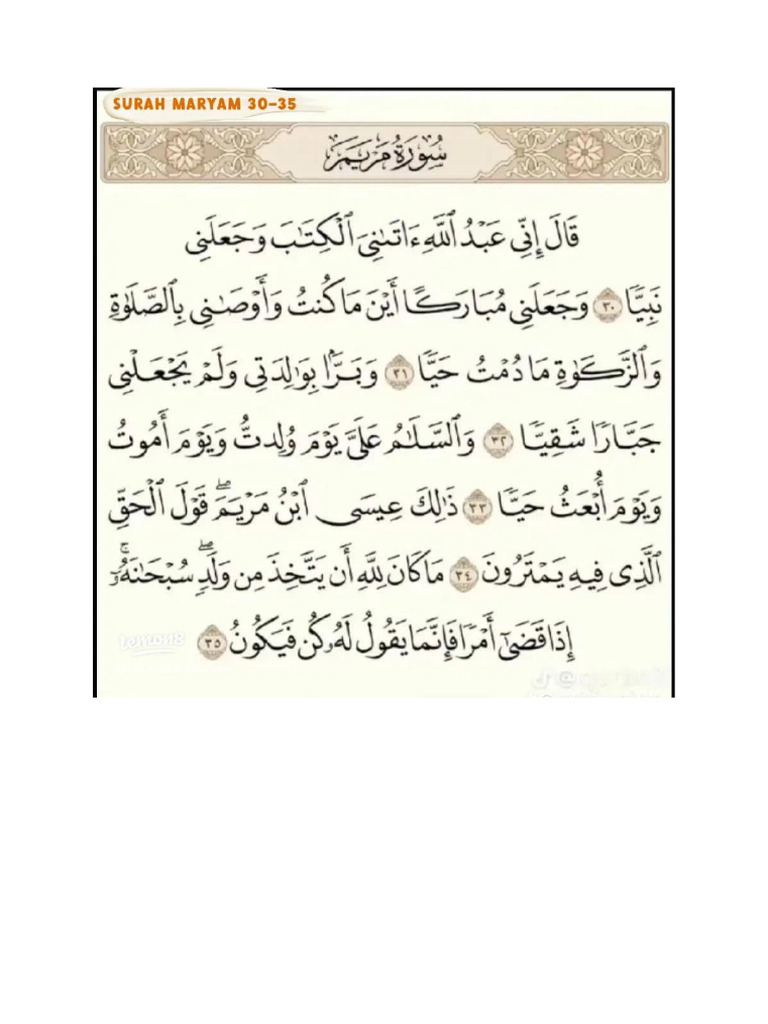 SURAH MARYAM 30-35
سُورَةُ مَرْيَمَ
قَالَ إِنِّي عَبْدُ ٱللَّهِ ءَاتَىٰنِيَ ٱلْكِتَٰبَ وَجَعَلَنِي
نَبِيًّا ٣٠ وَجَعَلَنِي مُبَارَكًا أَيْنَ مَا كُنتُ وَأَوْصَٰنِي بِٱلصَّلَوٰةِ
وَٱلزَّكَوٰةِ مَا دُمْتُ حَيًّا ٣١ وَبَرًّۢا بِوَٰلِدَتِي وَلَمْ يَجْعَلْنِي
جَبَّارًا شَقِيًّا ٣٢ وَٱلسَّلَٰمُ عَلَيَّ يَوْمَ وُلِدتُّ وَيَوْمَ أَمُوتُ
وَيَوْمَ أُبْعَثُ حَيًّا ٣٣ ذَٰلِكَ عِيسَى ٱبْنُ مَرْيَمَۖ قَوْلَ ٱلْحَقِّ
ٱلَّذِي فِيهِ يَمْتَرُونَ ٣٤ مَا كَانَ لِلَّهِ أَن يَتَّخِذَ مِن وَلَدٍۖ سُبْحَٰنَهُۥٓۚ
إِذَا قَضَىٰٓ أَمْرًا فَإِنَّمَا يَقُولُ لَهُۥ كُن فَيَكُونُ ٣٥
lemon8